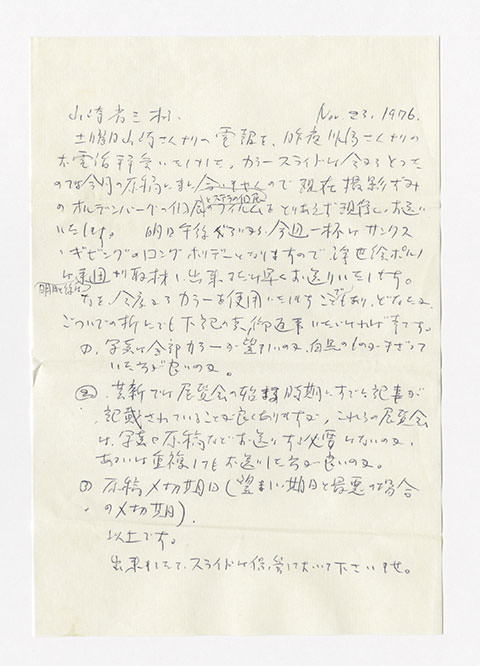 山崎省三様、 Nov. 23, 1976.
土曜日山崎さんよりの電報を、昨夜 さんよりの
お電話拝受いたしました。カラースライドは今からとった
のでは今月の原稿にまに合いませんので現在撮影ずみ
のオルデンバーグの個展のフィルムをとりあえず現像し、お送り
いたします。 明日午後 今週一杯はサンクス
・ギビングのロングホリデーとなりますので浮世絵ポルノ
は来週より取材し出来るだけ早くお送りいたします。
なお、今度よりカラーを使用いたします あり、
ついての折にでも下記の件、御返事いただければ幸です。
①、写真は全部カラーが望ましいのか、白黒のものもまざって
いた方が良いのか。
②、芸新では展覧会の 時期にすでに記事が
記載されていることが良くありますが、これらの展覧会
は、写真と原稿などお送りする必要はないのか、
あるいは重複してもお送りした方が良いのか。
③ 原稿〆切期日(望ましい期日と最悪の場合
の〆切期日)。
以上です。
出来ましたら、スライドは保管しておいて下さいませ。